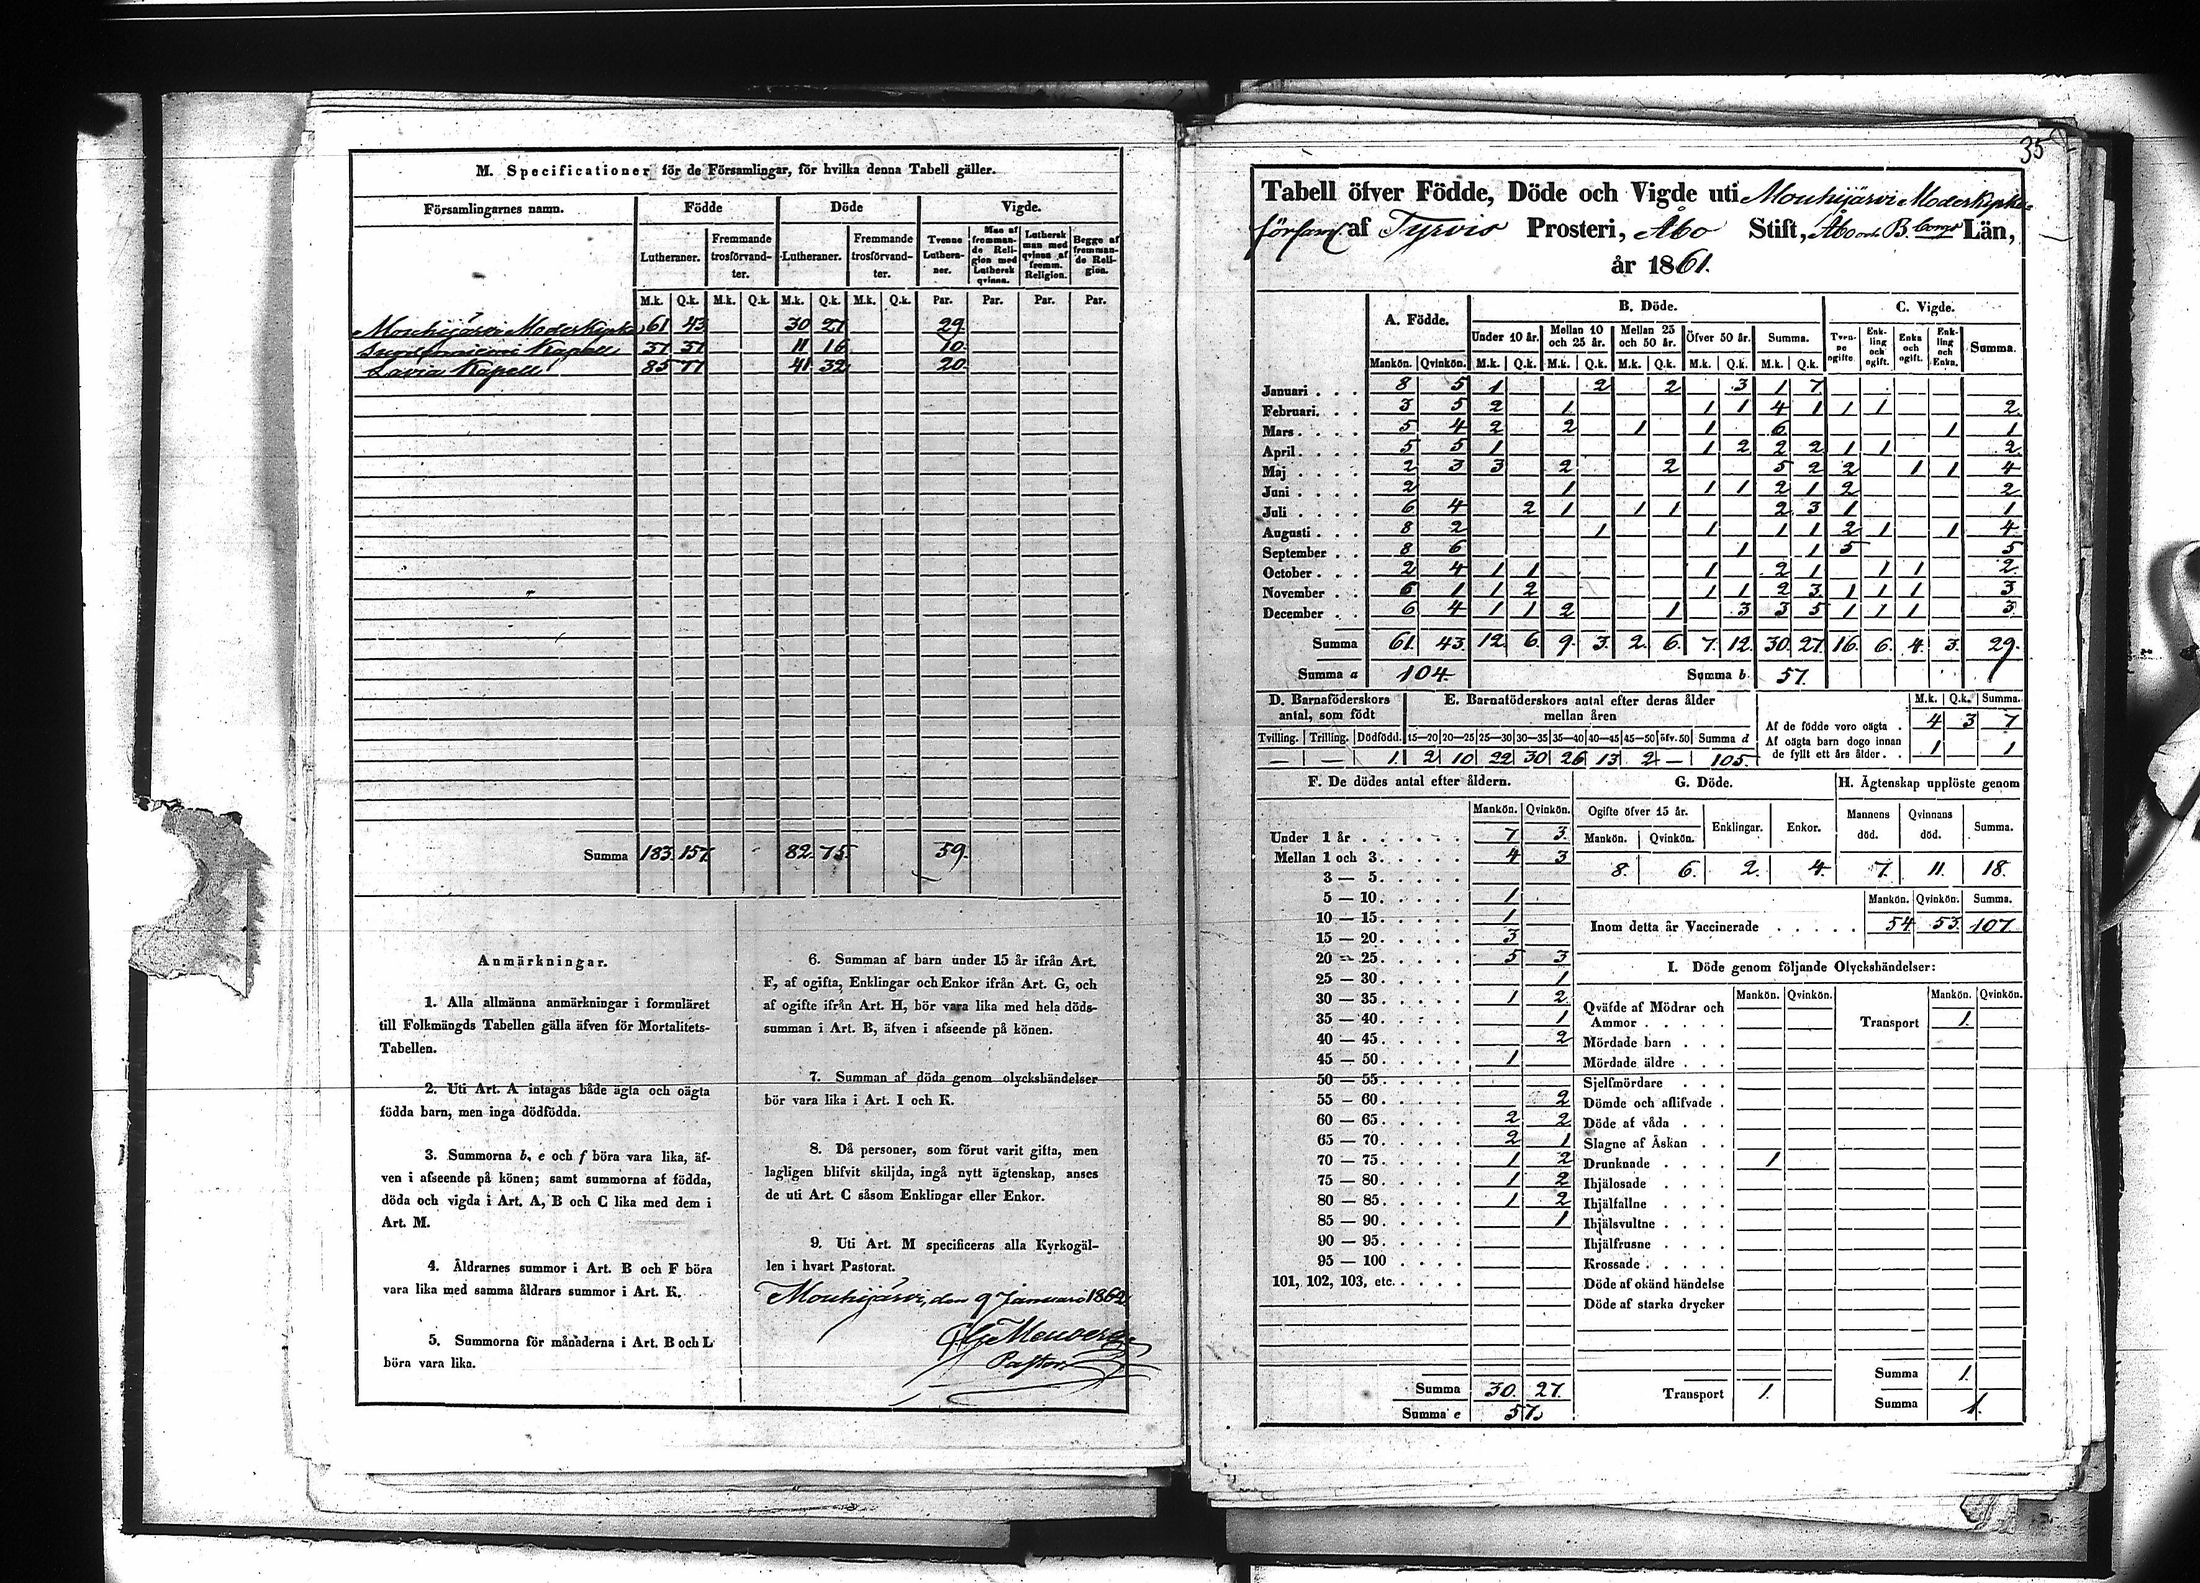 M. Specificationer för de Församlingar, för hvilka denna Tabell gäller.
Församlingarnes namn. Födde Döde Vigde.
Lutheraner. Fremmande trosförvandter. Lutheraner. Fremmande trosförvandter. Tvenne Lutheraner. Man af fremmande Religion med Luthersk qvinna. Luthersk man med qvinna af fremm. Religion. Begge af fremmande Religion.
M.k. Q.k. M.k. Q.k. M.k. Q.k. M.k. Q.k. Par. Par. Par. Par.
Mouhijärvi Moderkyrka 61 43 30 27 29.
Suodenniemi Kapell 37 37 11 16 10.
Lavia Kapell 85 77 41 32 20.
Summa 183. 157. 82. 75. 59.
Anmärkningar.
1. Alla allmänna anmärkningar i formuläret
till Folkmängds Tabellen gälla äfven för Mortalitets-
Tabellen.
2. Uti Art. A intagas både ägta och oägta
födda barn, men inga dödfödda.
3. Summorna b, e och f böra vara lika, äf-
ven i afseende på könen; samt summorna af födda,
döda och vigda i Art. A, B och C lika med dem i
Art. M.
4. Åldrarnes summor i Art. B och F böra
vara lika med samma åldrars summor i Art. K.
5. Summorna för månaderna i Art. B och L
böra vara lika.
6. Summan af barn under 15 år ifrån Art.
F, af ogifta, Enklingar och Enkor ifrån Art. G, och
af ogifte ifrån Art. H, bör vara lika med hela döds-
summan i Art. B, äfven i afseende på könen.
7. Summan af döda genom olyckshändelser
bör vara lika i Art. I och K.
8. Då personer, som förut varit gifta, men
lagligen blifvit skiljda, ingå nytt ägtenskap, anses
de uti Art. C såsom Enklingar eller Enkor.
9. Uti Art. M specificeras alla Kyrkogäl-
len i hvart Pastorat.
Mouhijärvi, den 9 Januari 1862
Pastor
35
Tabell öfver Födde, Döde och Vigde uti Mouhijärvi Moderkyrko-
församl. af Tyrvis Prosteri, Åbo Stift, Åbo och B.borgs Län,
år 1861.
A. Födde. B. Döde. C. Vigde.
Under 10 år. Mellan 10 och 25 år. Mellan 25 och 50 år. Öfver 50 år. Summa. Tvenne ogifte. Enkling och ogift. Enka och ogift. Enkling och Enka. Summa.
Mankön. Qvinkön. M.k. Q.k. M.k. Q.k. M.k. Q.k. M.k. Q.k. M.k. Q.k.
Januari . . . 8 5 1 2 2 3 1 7
Februari. . . 3 5 2 1 1 1 4 1 1 1 2
Mars . . . . 5 4 2 2 1 1 6 1 1
April . . . . 5 5 1 1 2 2 2 1 1 2
Maj . . . . 2 3 3 2 2 5 2 2 1 1 4
Juni . . . . 2 1 1 1 2 1 2 2
Juli . . . . 6 4 2 1 1 1 2 3 1 1
Augusti . . . 8 2 1 1 1 1 2 1 1 4
September . . 8 6 1 1 5 5
October . . . 2 4 1 1 1 2 1 1 1 2
November . . 6 1 1 2 1 1 2 3 1 1 1 3
December . . 6 4 1 1 2 1 3 3 5 1 1 1 3
Summa 61. 43. 12. 6. 9. 3. 2. 6. 7. 12. 30. 27. 16. 6. 4. 3. 29.
Summa a 104. Summa b 57.
D. Barnaföderskors antal, som födt E. Barnaföderskors antal efter deras ålder mellan åren
M.k. Q.k. Summa.
Af de födde voro oägta . 4 3 7
Af oägta barn dogo innan de fyllt ett års ålder. . 1 1
Tvilling. Trilling. Dödfödd. 15—20 20—25 25—30 30—35 35—40 40—45 45—50 öfv. 50 Summa d
— — 1 2 10 22 30 26 13 2 — 105.
F. De dödes antal efter åldern. G. Döde. H. Ägtenskap upplöste genom
Mankön. Qvinkön.
Under 1 år . . . . . . 7 3.
Mellan 1 och 3. . . . . 4 3
3 — 5. . . . .
5 — 10. . . . . 1
10 — 15. . . . . 1
15 — 20. . . . . 3
20 — 25. . . . . 5 3
25 — 30. . . . . 1
30 — 35. . . . . 1 2
35 — 40. . . . . 1
40 — 45. . . . . 2
45 — 50. . . . . 1
50 — 55. . . . .
55 — 60. . . . . 2
60 — 65. . . . . 2 2
65 — 70. . . . . 2 1
70 — 75. . . . . 1 2
75 — 80. . . . . 1 2
80 — 85. . . . . 1 2
85 — 90. . . . . 1
90 — 95. . . . .
95 — 100 . . . .
101, 102, 103, etc. . . . .
Summa 30. 27.
Summa e 57.
Ogifte öfver 15 år. Enklingar. Enkor. Mannens död. Qvinnans död. Summa.
Mankön. Qvinkön.
8. 6. 2. 4. 7. 11. 18.
Mankön. Qvinkön. Summa.
Inom detta år Vaccinerade . . . . . 54 53 107
I. Döde genom följande Olyckshändelser:
Mankön. Qvinkön. Mankön. Qvinkön.
Qväfde af Mödrar och
Ammor . . . . . Transport 1.
Mördade barn . . .
Mördade äldre . . .
Sjelfmördare . . .
Dömde och aflifvade .
Döde af våda . . .
Slagne af Åskan . .
Drunknade . . . . 1
Ihjälosade . . . .
Ihjälfallne . . . .
Ihjälsvultne . . . .
Ihjälfrusne . . . .
Krossade . . . . .
Döde af okänd händelse
Döde af starka drycker
Summa 1.
Transport 1. Summa 1.